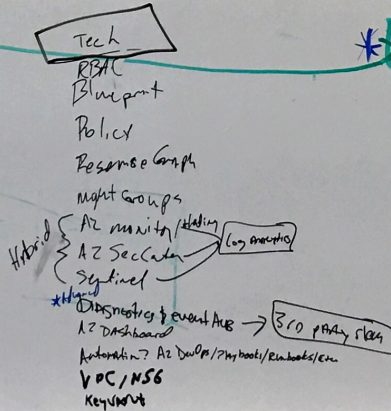 Tech
RBAC
Blueprint
Policy
Resource Graph
Mgmt Groups
Hybrid { AZ monitor/ Log Analytics
AZ SecCenter
Sentinel
Diagnostics & event Hub → 3rd party
AZ Dashboard
Automation? AZ DevOps/Playbooks/Runbooks/etc
VDC/NSG
Keyvault